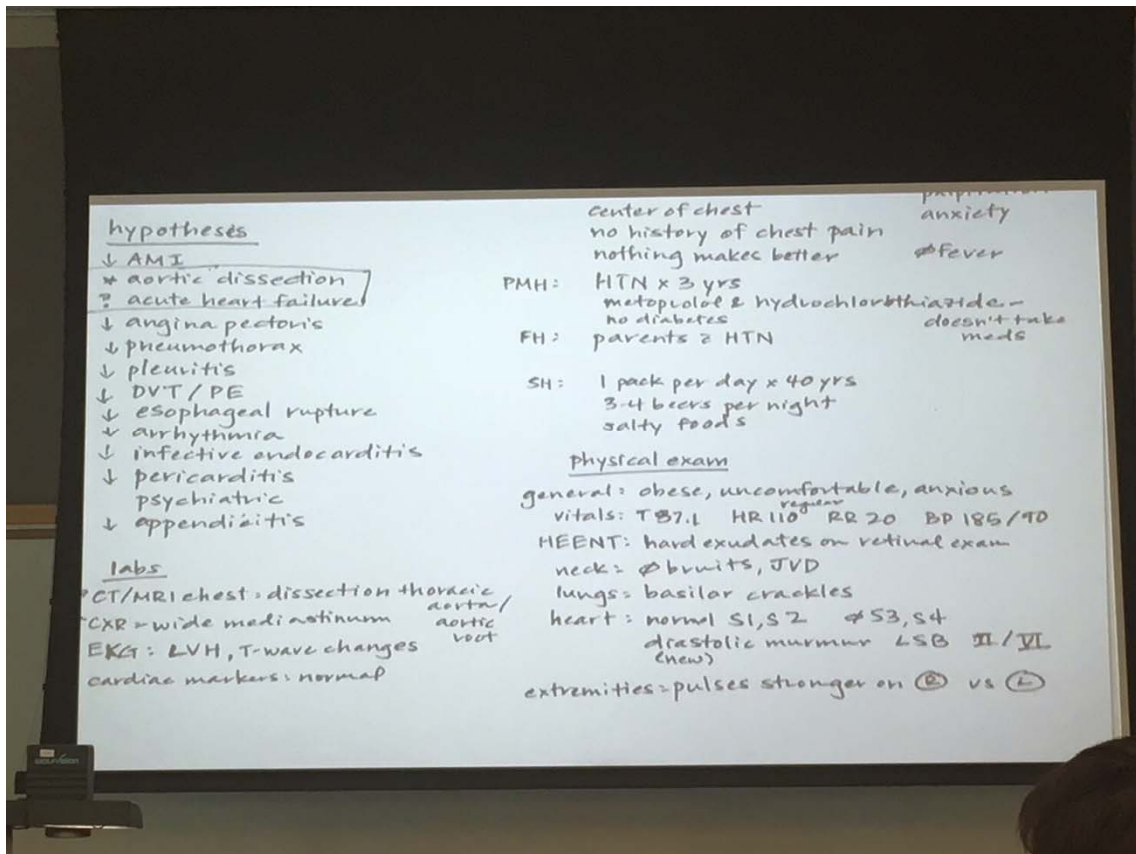 hypotheses
↓ AMI
* aortic dissection
? acute heart failure
↓ angina pectoris
↓ pneumothorax
↓ pleuritis
↓ DVT / PE
↓ esophageal rupture
↓ arrhythmia
↓ infective endocarditis
↓ pericarditis
psychiatric
↓ appendicitis
labs
CT/MRI chest: dissection thoracic aorta/ aortic root
CXR = wide mediastinum
EKG: LVH, T-wave changes
cardiac markers: normal
center of chest
anxiety
no history of chest pain
nothing makes better
∅ fever
PMH: HTN x 3 yrs
metoprolol & hydrochlorothiazide - doesn't take meds
no diabetes
FH: parents c̄ HTN
SH: 1 pack per day x 40 yrs
3-4 beers per night
salty foods
physical exam
general: obese, uncomfortable, anxious
vitals: T 37.1 HR 110 regular RR 20 BP 185/90
HEENT: hard exudates on retinal exam
neck: ∅ bruits, JVD
lungs: basilar crackles
heart: normal S1, S2 ∅ S3, S4
diastolic murmur LSB II/VI
(new)
extremities: pulses stronger on Ⓡ vs Ⓛ
wolfvision